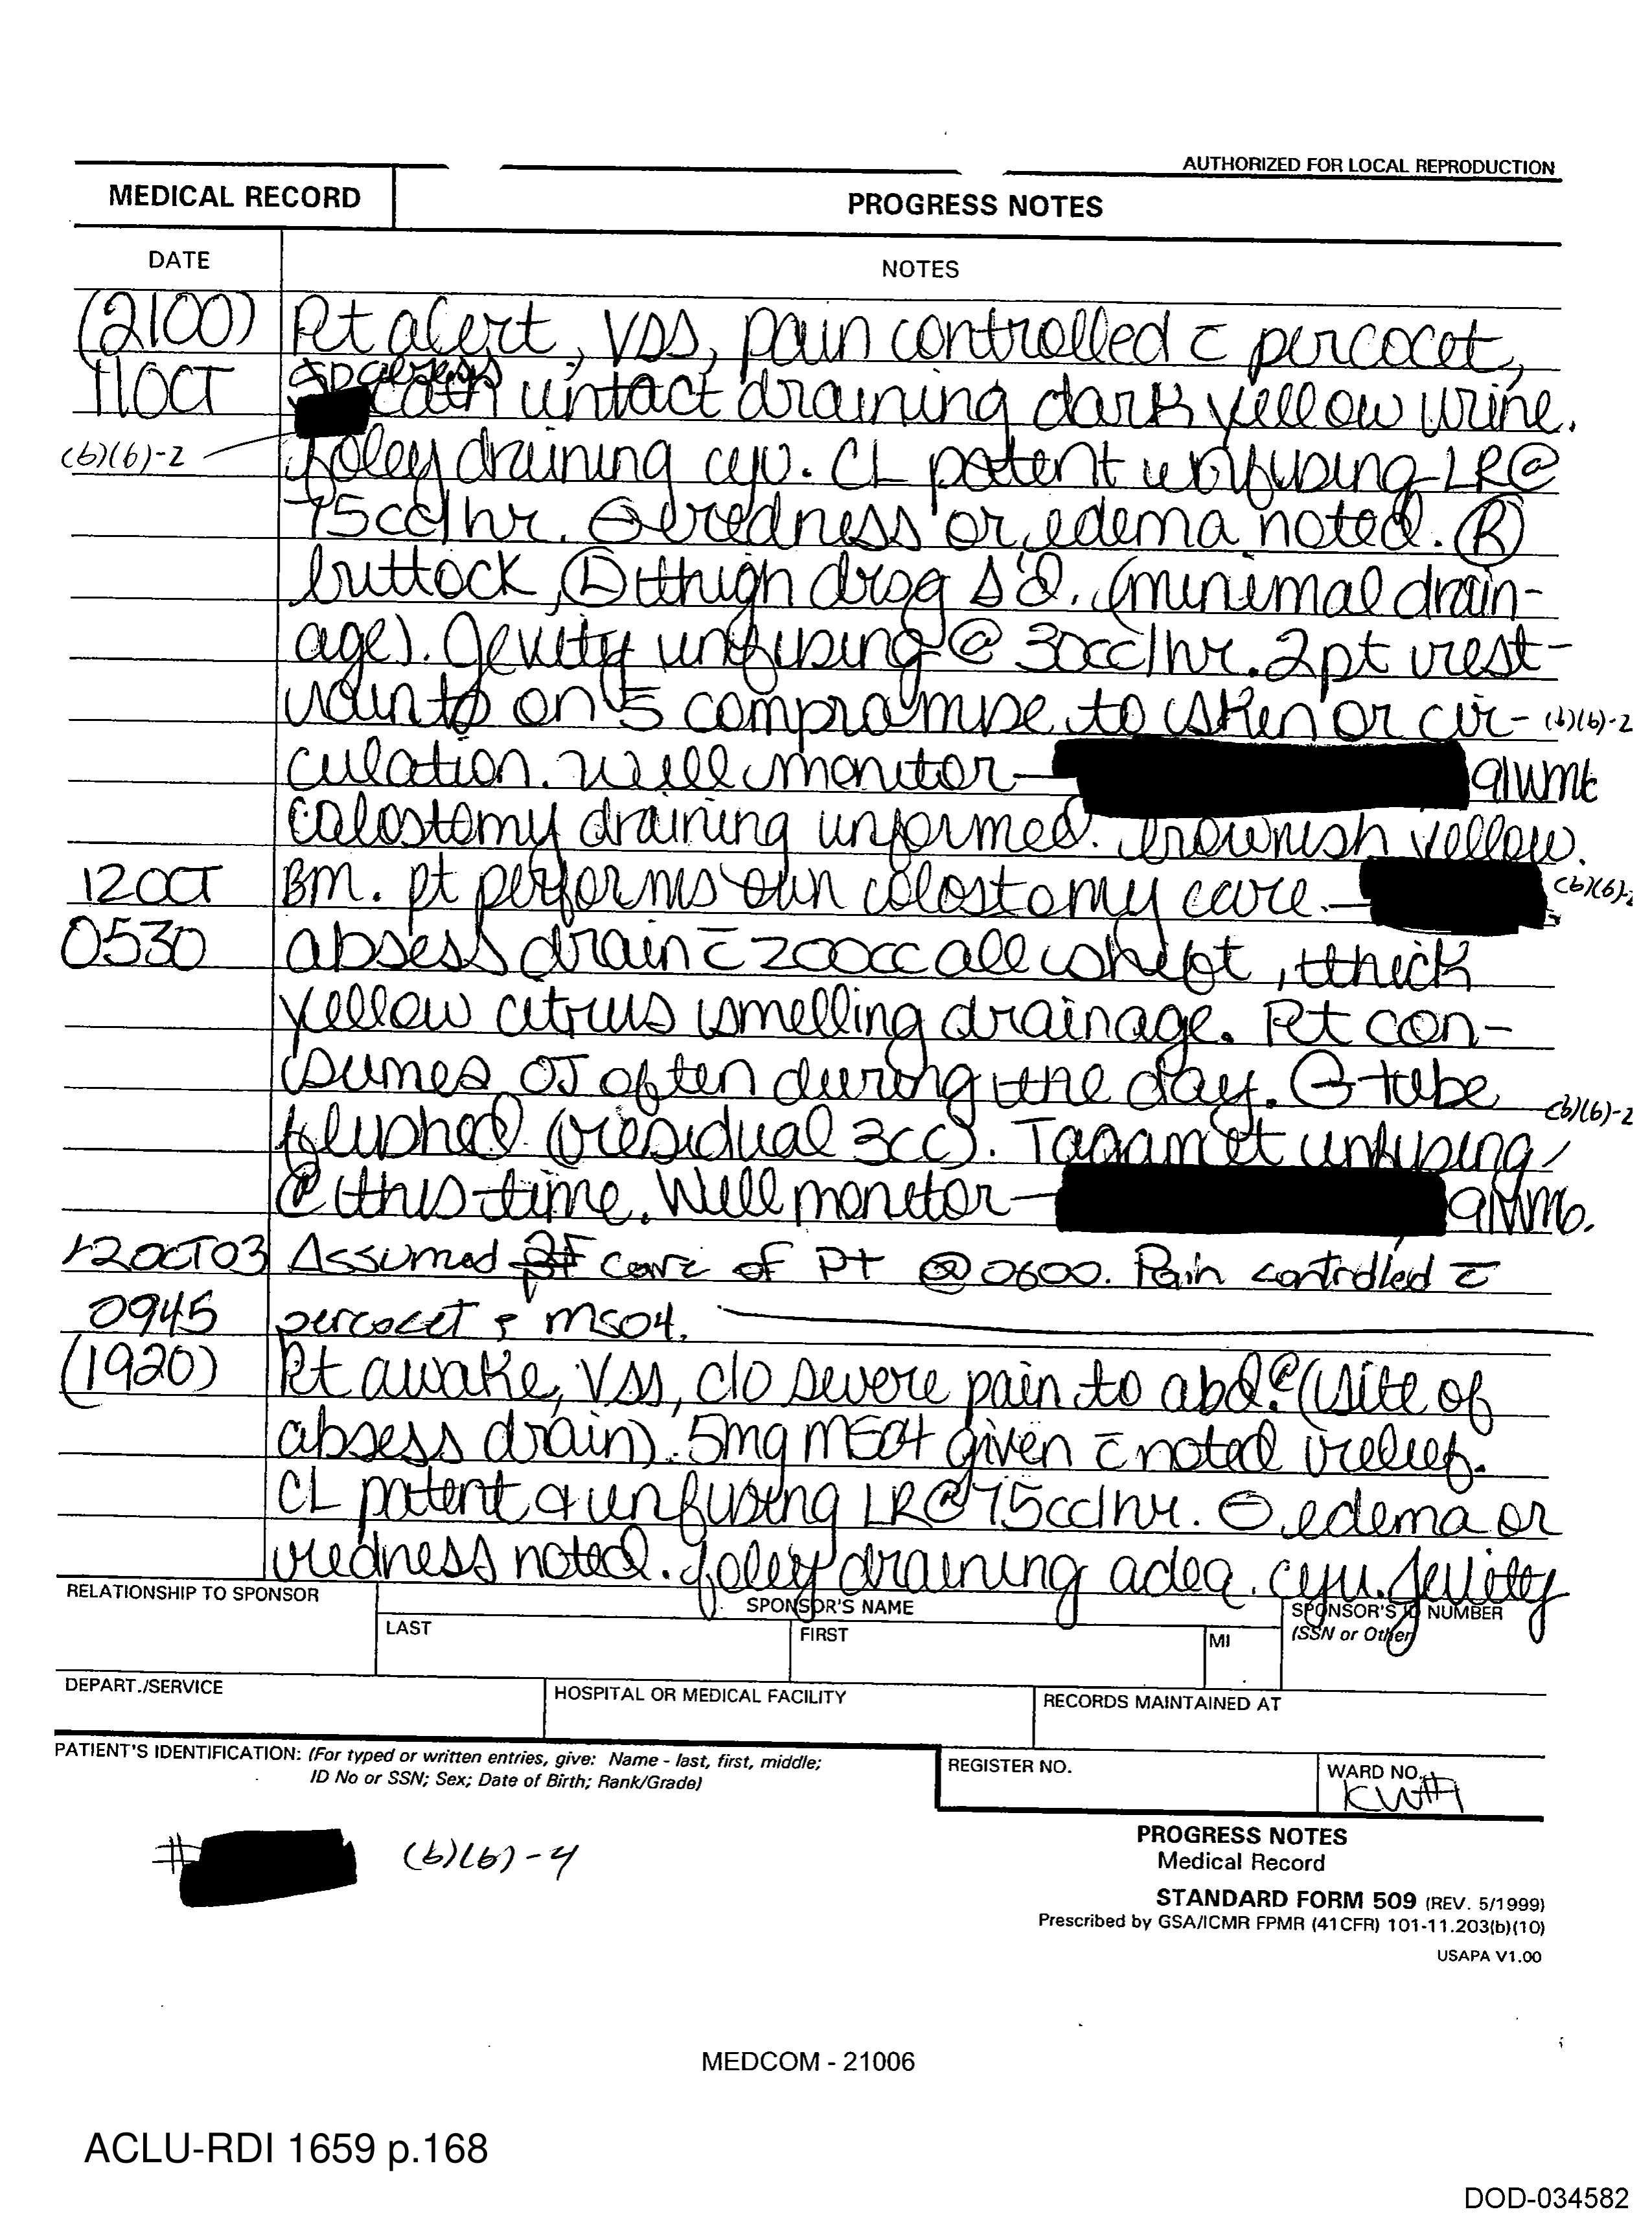 AUTHORIZED FOR LOCAL REPRODUCTION
MEDICAL RECORD
PROGRESS NOTES
DATE
NOTES
(2100) Pt alert, VSS, pain controlled c̄ percocet,
11 OCT cath intact draining dark yellow urine.
(b)(6)-2 foley draining cyu. CL patent infusing LR@
75cc/hr. ⊖ redness or edema noted. Ⓡ
buttock, Ⓛ thigh drsg Δ'd. (minimal drain-
age). Jevity infusing @ 30cc/hr. 2pt rest-
raints on s̄ compromise to skin or cir- (b)(6)-2
culation. Will monitor— 91WM6
Colostomy draining unformed. brownish yellow.
12 OCT BM. pt performs own colostomy care.— (b)(6)-2
0530 absess drain c̄ 200cc all shift, thick
yellow citrus smelling drainage. Pt con-
sumes OJ often during the day. G tube
flushed (residual 3cc). Tagamet infusing (b)(6)-2
@ this time. Will monitor— 91WM6.
12OCT03 Assumed care of Pt @ 0600. Pain controlled c̄
0945 percocet & MSO4.
(1920) Pt awake, VSS, c/o severe pain to abd. (site of
absess drain). 5mg MSO4 given c̄ noted relief.
CL patent & infusing LR@75cc/hr. ⊖ edema or
redness noted. foley draining adeq. cyu. Jevity
RELATIONSHIP TO SPONSOR
SPONSOR'S NAME
SPONSOR'S ID NUMBER
(SSN or Other)
LAST
FIRST
MI
DEPART./SERVICE
HOSPITAL OR MEDICAL FACILITY
RECORDS MAINTAINED AT
PATIENT'S IDENTIFICATION: (For typed or written entries, give: Name - last, first, middle;
ID No or SSN; Sex; Date of Birth; Rank/Grade)
REGISTER NO.
WARD NO.
#
(b)(6)-4
PROGRESS NOTES
Medical Record
STANDARD FORM 509 (REV. 5/1999)
Prescribed by GSA/ICMR FPMR (41CFR) 101-11.203(b)(10)
USAPA V1.00
MEDCOM - 21006
ACLU-RDI 1659 p.168
DOD-034582